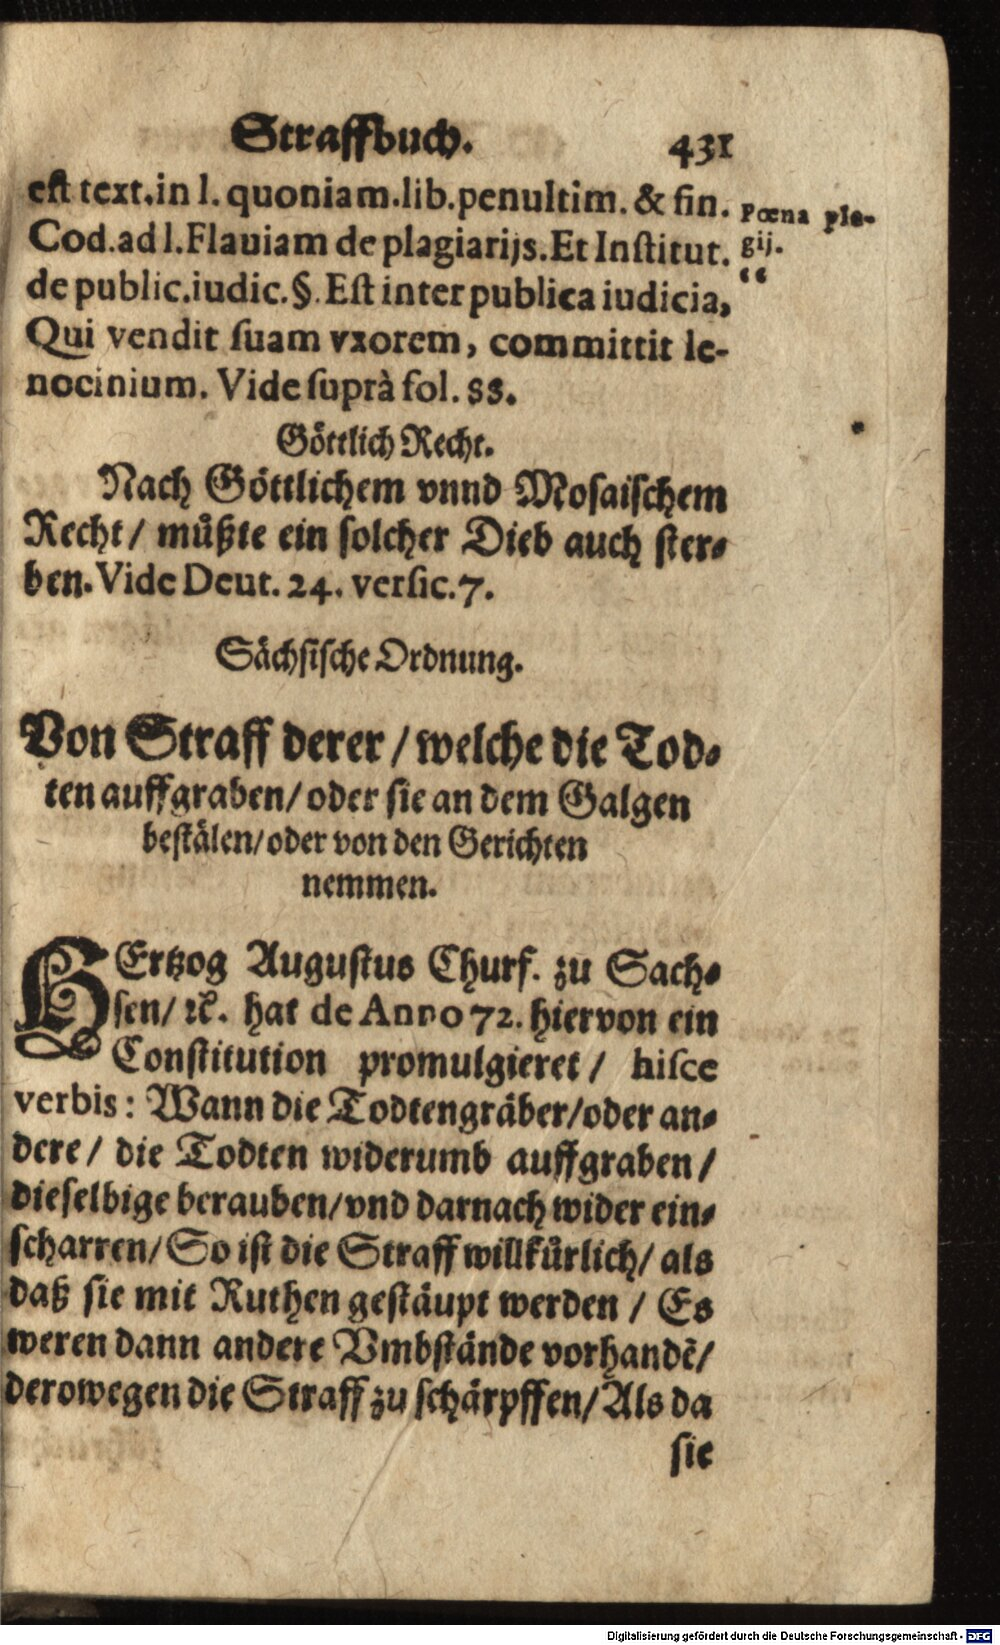 Straffbuch. 431
est text.in l. quoniam.lib.penultim. & fin.
Cod.ad l.Flauiam de plagiarijs.Et Institut.
de public.iudic.§.Est inter publica iudicia,
Qui vendit suam vxorem, committit le-
nocinium. Vide suprà fol. 88.
Pœna pla-
gij.
“
Göttlich Recht.
Nach Göttlichem vnnd Mosaischem
Recht/ müßte ein solcher Dieb auch ster-
ben. Vide Deut. 24. versic.7.
Sächsische Ordnung.
Von Straff derer/welche die Tod-
ten auffgraben/oder sie an dem Galgen
bestälen/oder von den Gerichten
nemmen.
HErtzog Augustus Churf. zu Sach-
sen/ ꝛc. hat de Anno 72. hiervon ein
Constitution promulgieret/ hisce
verbis: Wann die Todtengräber/oder an-
dere/ die Todten widerumb auffgraben/
dieselbige berauben/vnd darnach wider ein-
scharren/So ist die Straff willkürlich/ als
daß sie mit Ruthen gestäupt werden/ Es
weren dann andere Vmbstände vorhandē/
derowegen die Straff zu schärpffen/Als da
sie
Digitalisierung gefördert durch die Deutsche Forschungsgemeinschaft - DFG